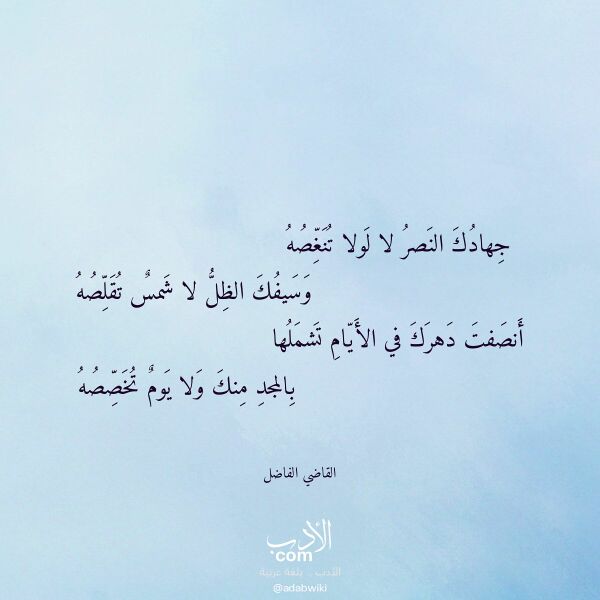 جِهادُكَ النَصرُ لا لَولا تُنَغِّصُهُ
وَسَيفُكَ الظِلُّ لا شَمسٌ تُقَلِّصُهُ
أَنصَفتَ دَهرَكَ في الأَيّامِ تَشمَلُها
بِالمَجدِ مِنكَ وَلا يَومٌ تُخَصِّصُهُ
القاضي الفاضل
الأدب
com
الأدب .. بلغة عربية
@adabwiki